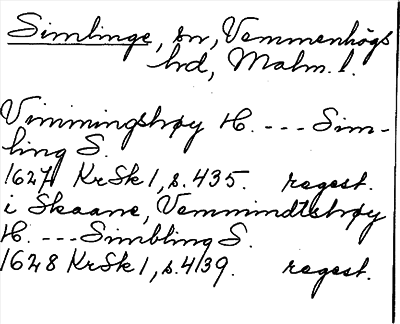 Simlinge, sn, Vemmenhögs
hd, Malm. l.
Vimmingshøy H. --- Sim-
ling S.
1627 KrSk 1, s. 435. regest.
i Skaane, Vemmindtshøy
H. --- Simbling S.
1628 KrSk 1, s. 439. regest.